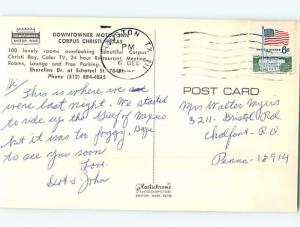 DOWNTOWNER MOTOR INN
CORPUS CHRISTI, TEXAS
100 lovely rooms overlooking beautiful Corpus
Christi Bay, Color TV, 24 hour Restaurant, Meeting
Rooms, Lounge and Free Parking.
Shoreline Dr. at Schatzel St. 78401
Phone (512) 884-4815
PM
6 DEC
6c
Hi
This is where we
were last night. We started
to ride up the Gulf of Mexico
but it was too foggy. Hope
to see you soon
Love
Dot & John
POST CARD
Mrs Walter Myers
3211 - Bristol Rd
Chalfont - R.D.
Penna - 18914
Plastichrome
BY COLOURPICTURE
BOSTON, MASS. 02130